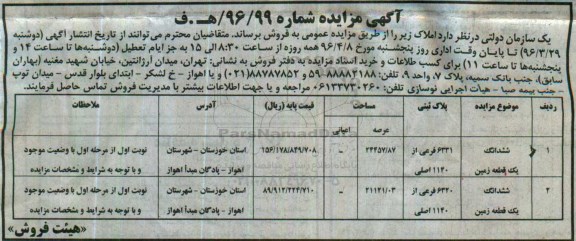 آگهی مزایده شماره ۹۶/۹۹/هـ.ف
یک سازمان دولتی درنظر دارد املاک زیر را از طریق مزایده عمومی به فروش برساند. متقاضیان محترم می‌توانند از تاریخ انتشار آگهی (دوشنبه
۹۶/۳/۲۹) تا پایان وقت اداری روز پنجشنبه مورخ ۹۶/۴/۸ همه روزه از ساعت ۸:۳۰ الی ۱۵ به جز ایام تعطیل (دوشنبه‌ها تا ساعت ۱۴ و
پنجشنبه‌ها تا ساعت ۱۱) برای کسب طلاعات و خرید اسناد مزایده به دفتر فروش به نشانی: تهران، میدان آرژانتین، خیابان شهید مغنیه (بهاران
سابق)، جنب بانک سمیه، پلاک ۷، واحد ۹، تلفن: ۸۸۸۸۴۱۸۸-۵۹ و ۸۸۷۸۷۸۵۲(۰۲۱) و یا اهواز - خ لشکر - ابتدای بلوار قدس - میدان توپ
- جنب بیمه صبا - هیأت اجرایی نوسازی تلفن: ۰۶۱۳۳۷۳۰۲۶۰ مراجعه و یا جهت اطلاعات بیشتر با مدیریت فروش تماس حاصل فرمایند.
ردیف موضوع مزایده پلاک ثبتی مساحت قیمت پایه (ریال) آدرس ملاحظات
عرصه اعیانی
۱ ششدانگ ۶۳۳۱ فرعی از ۲۴۴۵۷/۸۷ ـ ۱۵۶/۱۷۸/۸۴۹/۷۰۸ استان خوزستان - شهرستان نوبت اول از مرحله اول با وضعیت موجود
یک قطعه زمین ۱۱۴۰ اصلی اهواز - پادگان مبدأ اهواز و با توجه به شرایط و مشخصات مزایده
۲ ششدانگ ۶۳۲۰ فرعی از ۲۱۱۴۱/۰۳ ـ ۸۹/۹۱۲/۲۲۴/۷۱۰ استان خوزستان - شهرستان نوبت اول از مرحله اول با وضعیت موجود
یک قطعه زمین ۱۱۴۰ اصلی اهواز - پادگان مبدأ اهواز و با توجه به شرایط و مشخصات مزایده
«هیئت فروش»